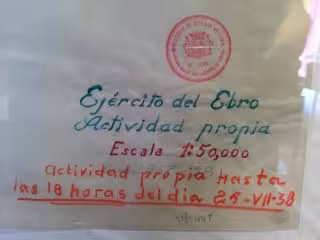 Ejército del Ebro
Actividad propia
Escala 1:50,000
Actividad propia hasta
las 18 horas del dia 25-VII-38